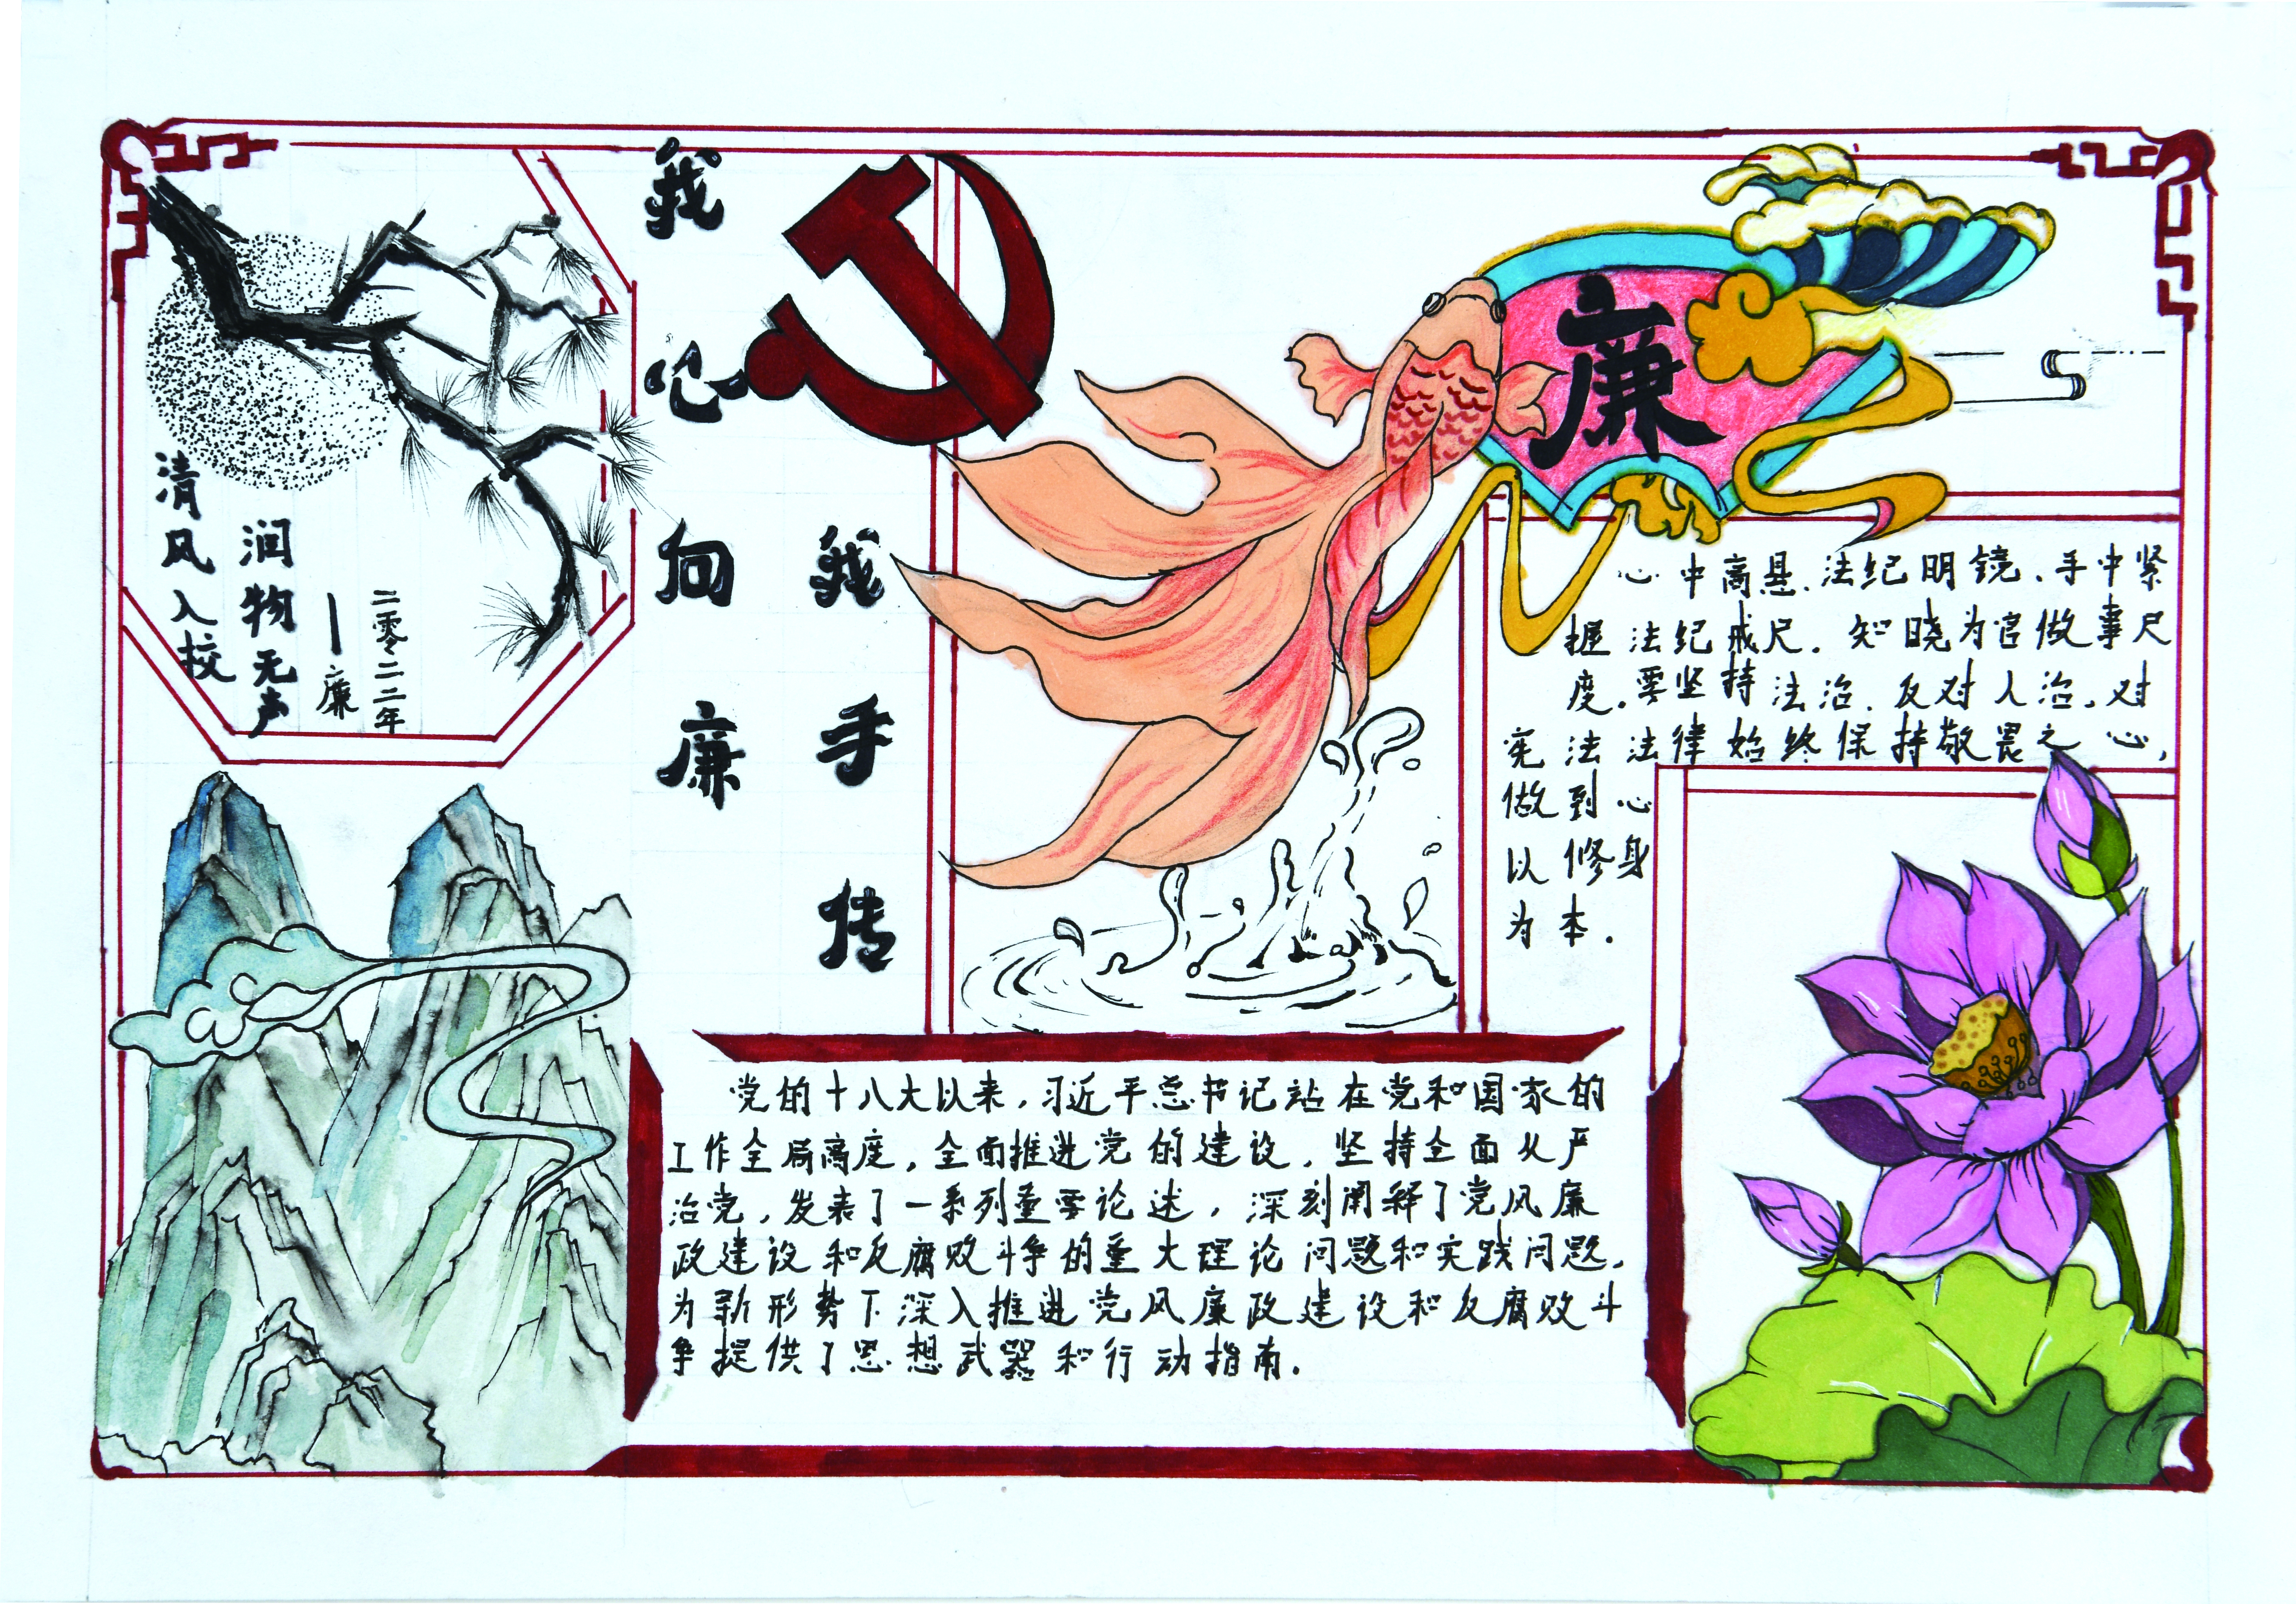 清风入校
润物无声
——廉
二零二二年
我心向廉
我手传
廉
心中高悬、法纪明镜、手中紧
握法纪戒尺. 知晓为官做事尺
度. 要坚持法治. 反对人治. 对
宪法法律始终保持敬畏之心,
做到心
以修身
为本.
党的十八大以来,习近平总书记站在党和国家的
工作全局高度,全面推进党的建设,坚持全面从严
治党,发表了一系列重要论述,深刻阐释了党风廉
政建设和反腐败斗争的重大理论问题和实践问题,
为新形势下深入推进党风廉政建设和反腐败斗
争提供了思想武器和行动指南.